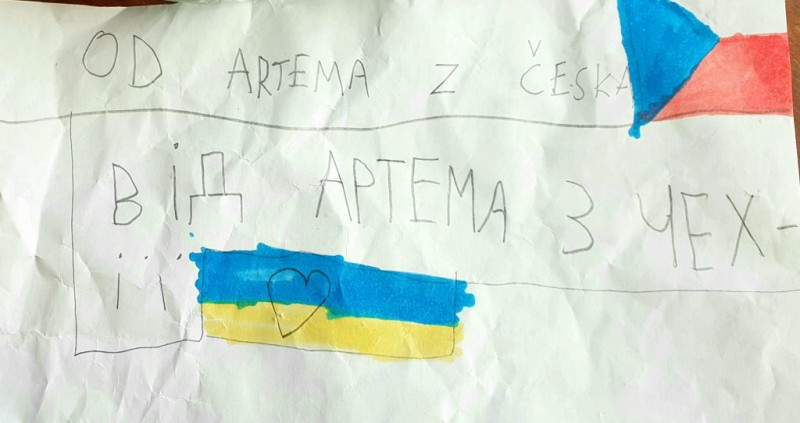 OD ARTEMA Z ČESKA
ВІД АРТЕМА З ЧЕХ-
ІЇ